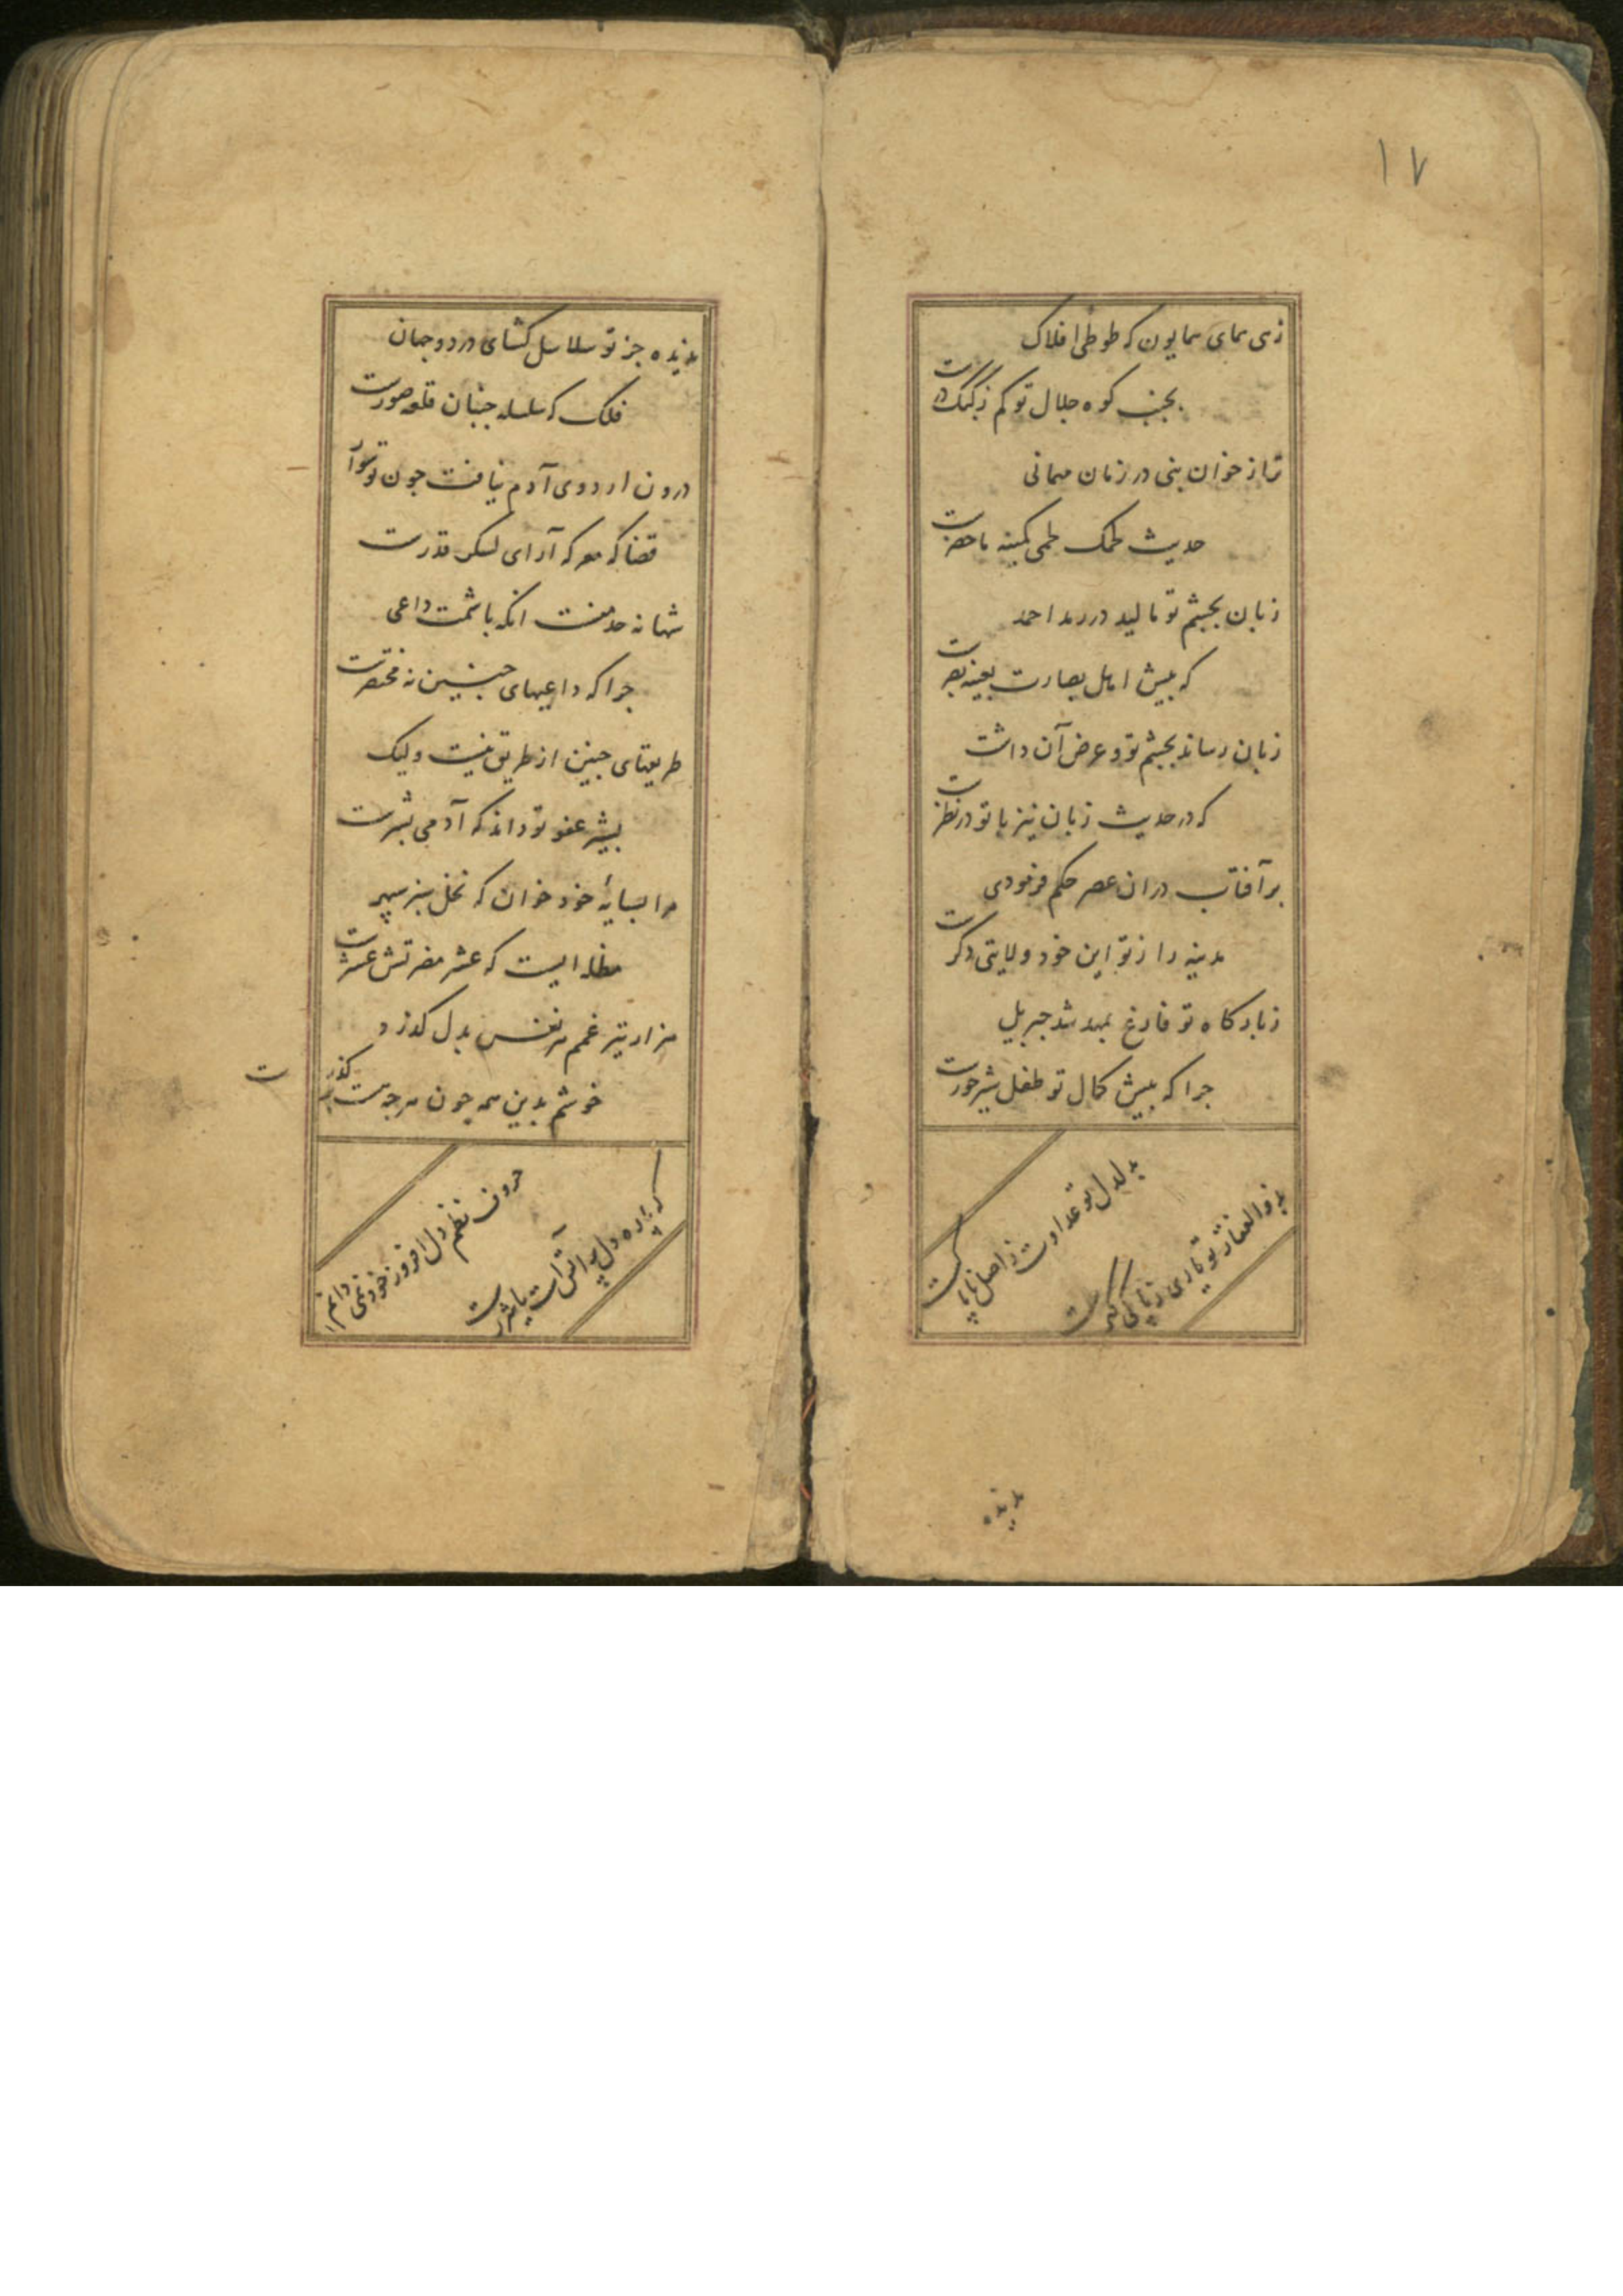 ۱۷
زهی همای همایون که طوطی افلاک
بجنب کوه جلال تو کم ز کبک درست
تراز خوان بنی در زمان مهمانی
حدیث لحمک لحمی کمینه ماحضرست
زبان بجشم تو مالید در رمد احمد
که بیش اهل بصارت بعینه بصرست
زبان رساند بجشم تو و غرض آن داشت
که در حدیث زبان نیز با تو در نظرست
بر آفتاب دران عصر حکم فرمودی
مدینه را ز تو این خود ولایتی دکرست
زبارکاه تو فارغ بمهد شد جبریل
جرا که بیش کمال تو طفل شیرخورست
بدلدل تو عداوت ز اصل ناپاکیست
بذوالفقار تو یاری ز پاکی کهرست
بدیده
ندیده جز تو سلاسل کشای در دو جهان
فلک که سلسله جنبان قلعه صورست
درون اردوی آدم نیافت جون تو سوار
قضا که معرکه آرای لشکر قدرست
شها نه حد منست انکه باشمت داعی
جرا که داعیهای جنین نه مختصرست
طریقهای جنین از طریق نیست ولیک
بشیر عفو تو داند که آدمی بشرست
مرا بسایهٔ خود خوان که نخل سبز سپهر
مظله ایست که عشر مضرتش عشرست
هزار تیر غمم هر نفس بدل کذرد
خوشم بدین همه جون هرجه هست بر کذرست
حروف نظم دل افروز خود نمی دانم
که پاره دل پر آتش است یا شررست